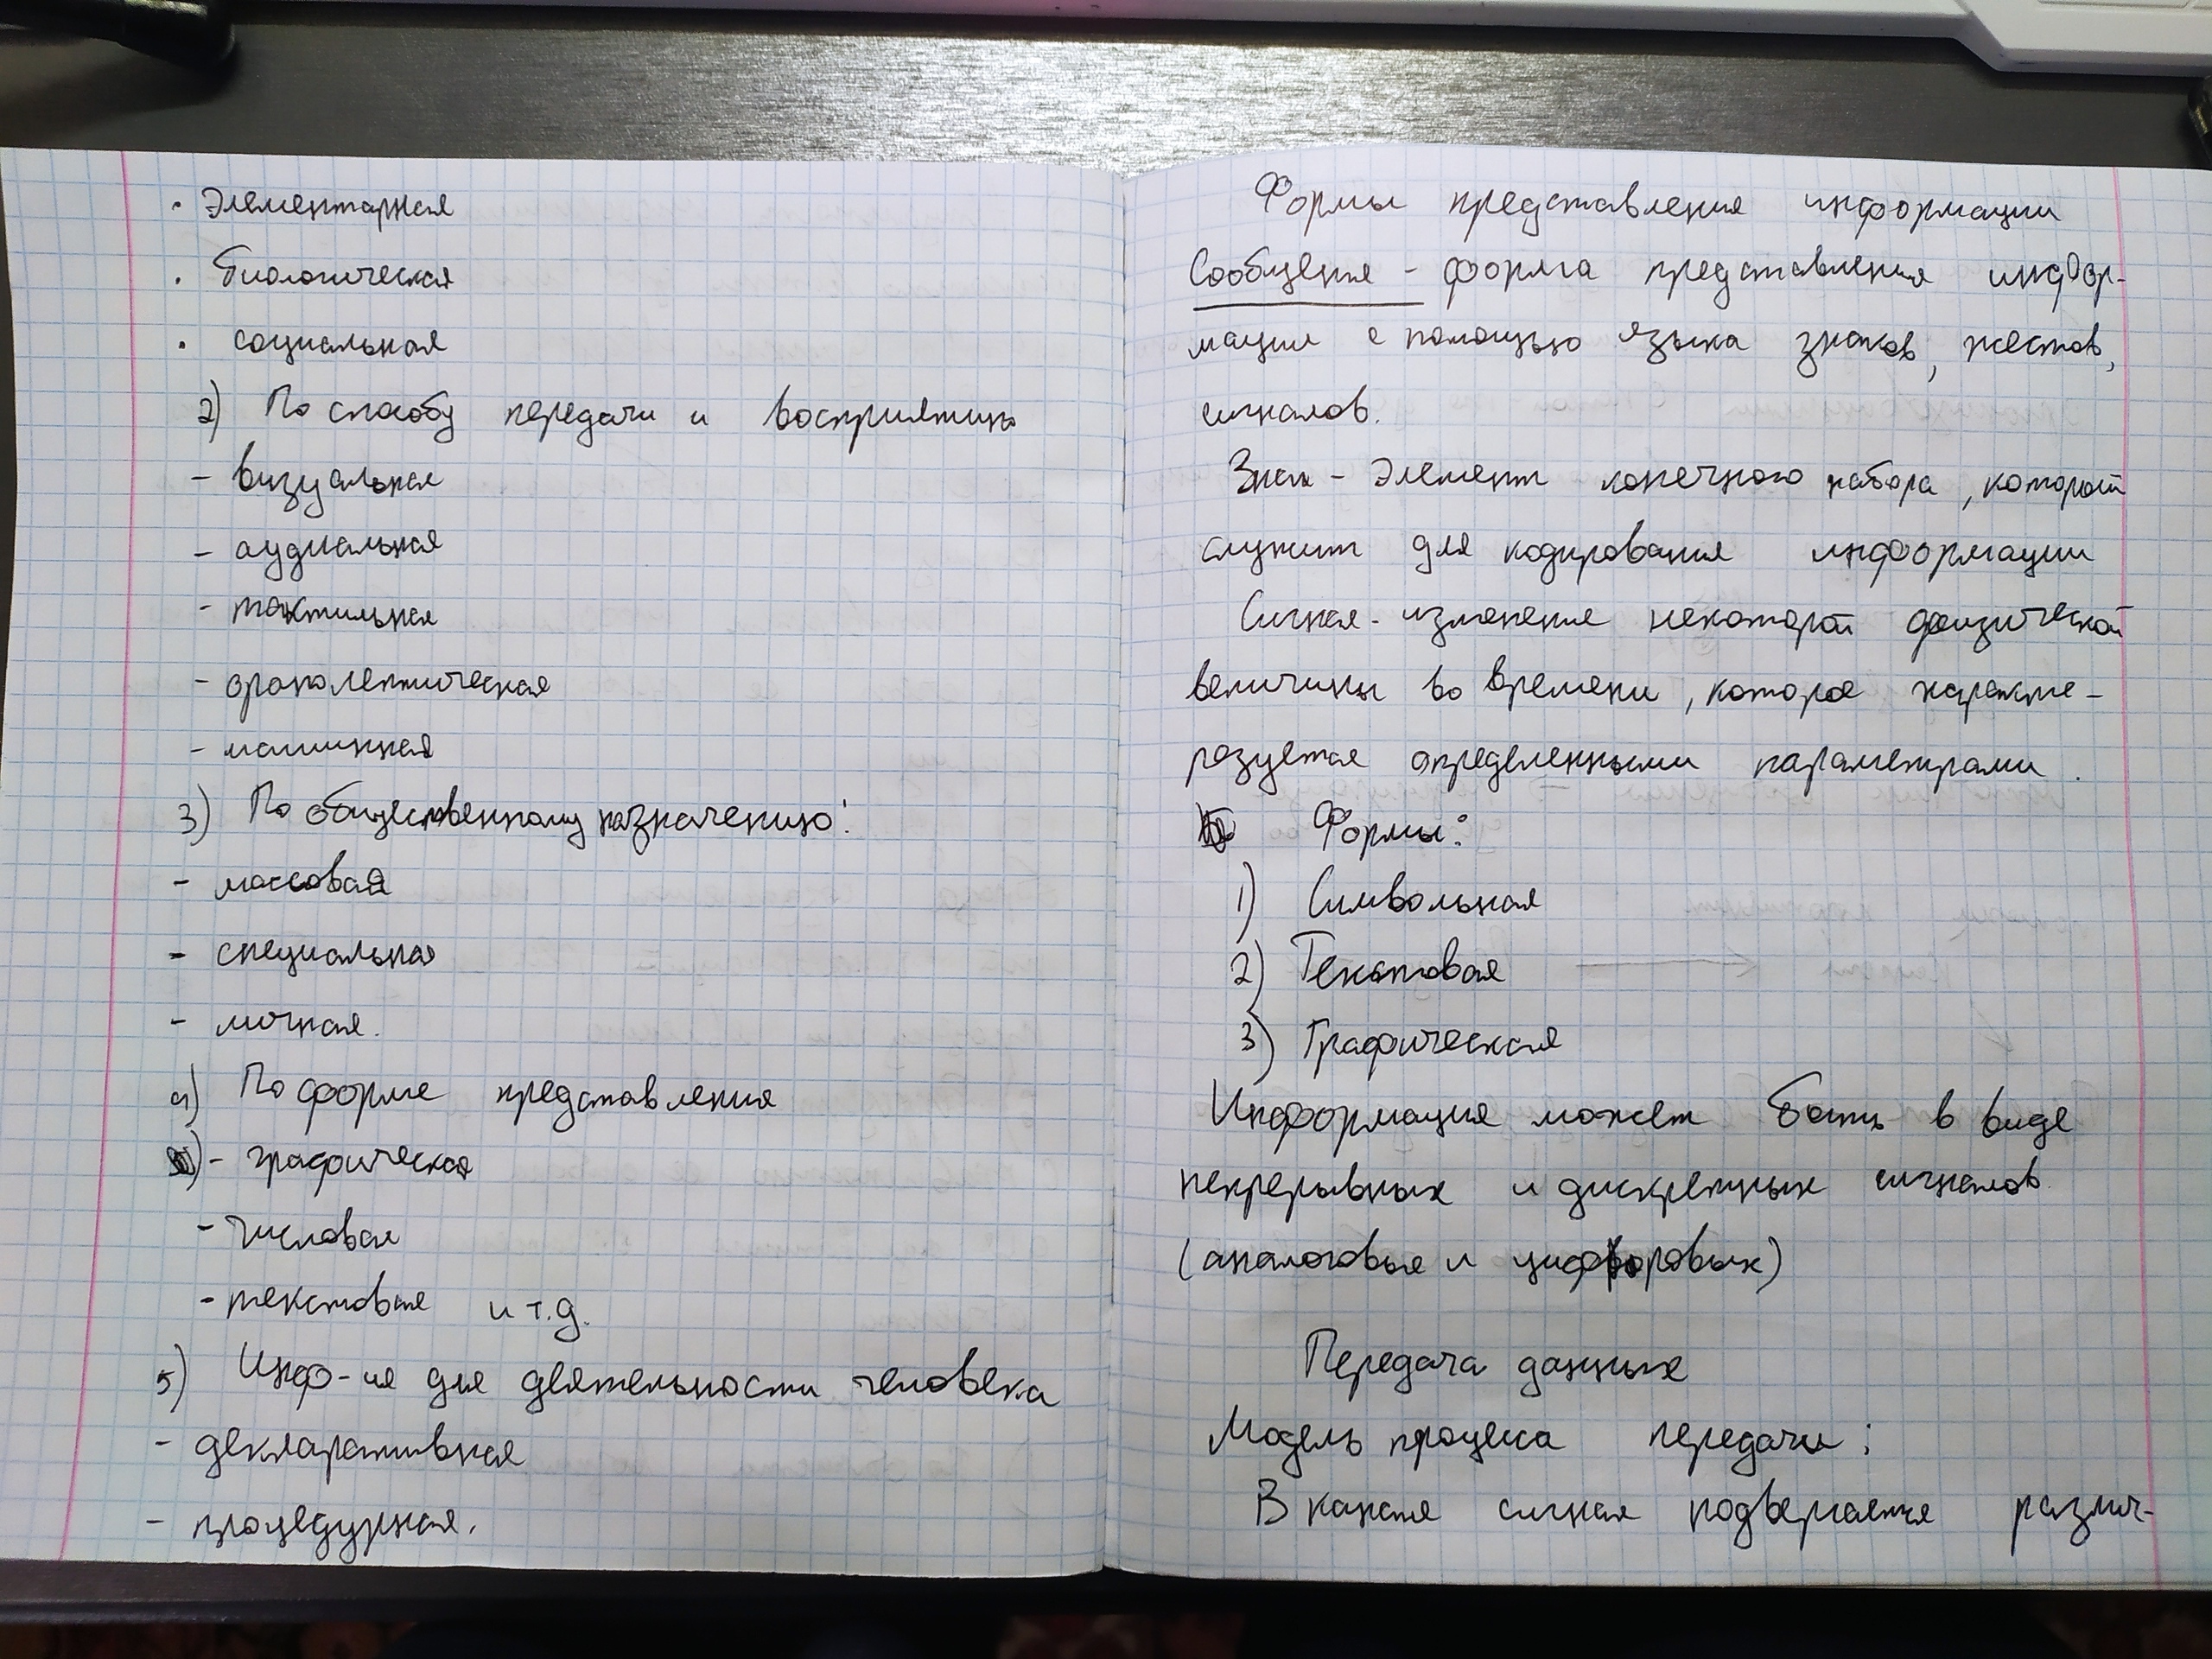 · Элементарная
· биологическая
· социальная
2) По способу передачи и восприятию
- визуальная
- аудиальная
- тактильная
- органолептическая
- машинная
3) По общественному назначению:
- массовая
- специальная
- личная.
4) По форме представления
- графическая
- числовая
- текстовая и т.д.
5) Инф-ия для деятельности человека
- декларативная
- процедурная.
Формы представления информации
Сообщения - форма представления инфор-
мации с помощью языка знаков, жестов,
сигналов.
Знак - элемент конечного набора, который
служит для кодирования информации
Сигнал - изменение некоторой физической
величины во времени, которое характе-
ризуется определенными параметрами.
Формы:
1) Символьная
2) Текстовая
3) Графическая
Информация может быть в виде
непрерывных и дискретных сигналов
(аналоговые и цифровых)
Передача данных
Модель процесса передачи:
В канале сигнал подвергается различ-